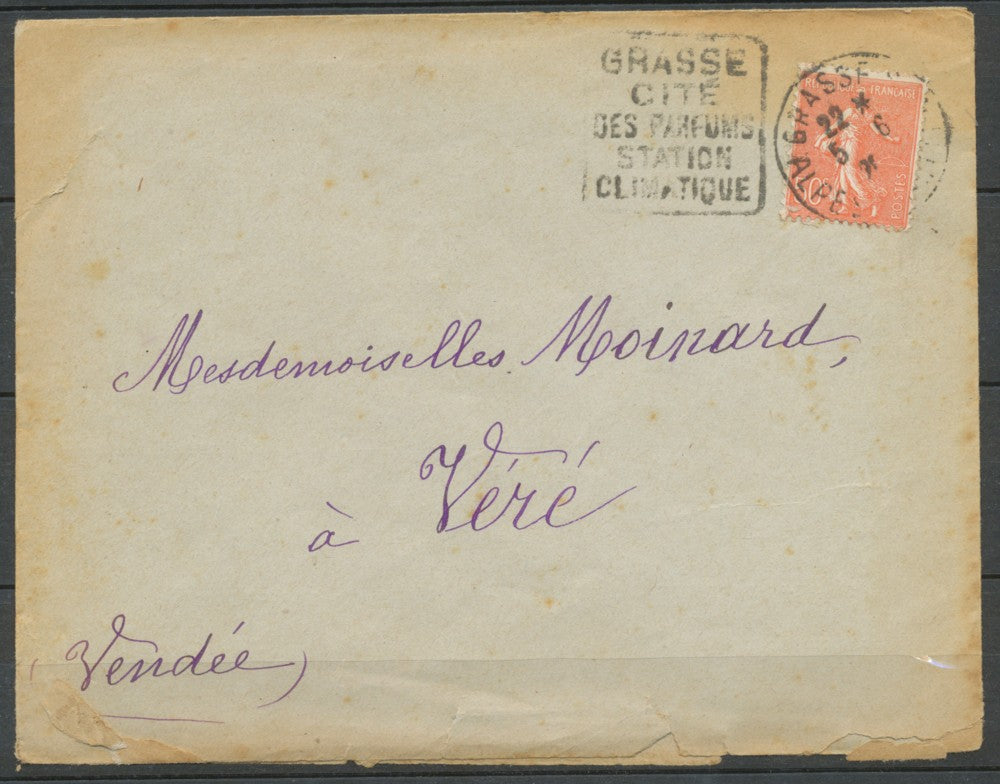 GRASSE
CITÉ
DES PARFUMS
STATION
CLIMATIQUE
GRASSE
22
5 6
ALPES
FRANÇAISE
POSTES
50c
Mesdemoiselles Moinard,
à Véré
(Vendée)